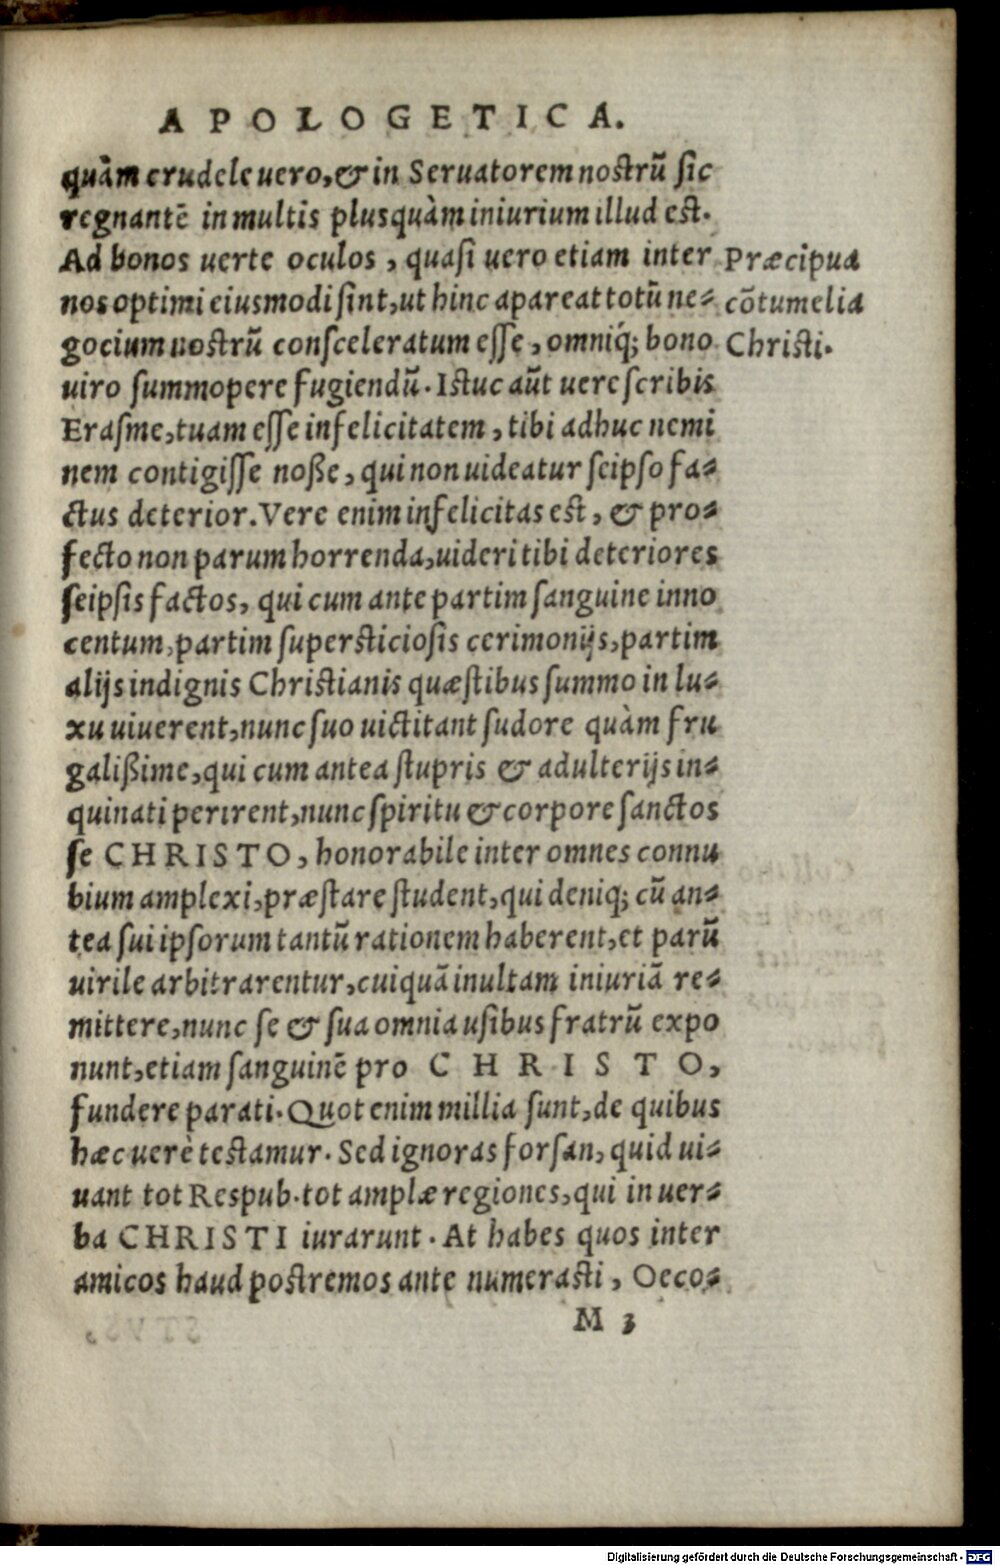 APOLOGETICA.
quàm crudele uero, & in Seruatorem nostrũ sic
regnantẽ in multis plusquàm iniurium illud est.
Ad bonos uerte oculos, quasi uero etiam inter
nos optimi eiusmodi sint, ut hinc apareat totũ ne-
gocium nostrũ consceleratum esse, omniq́; bono
uiro summopere fugiendũ. Istuc aũt uere scribis
Erasme, tuam esse infelicitatem, tibi adhuc nemi
nem contigisse noße, qui non uideatur seipso fa-
ctus deterior. Vere enim infelicitas est, & pro-
fecto non parum horrenda, uideri tibi deteriores
seipsis factos, qui cum ante partim sanguine inno
centum, partim supersticiosis cerimonijs, partim
alijs indignis Christianis quæstibus summo in lu-
xu uiuerent, nunc suo uictitant sudore quàm fru
galißime, qui cum antea stupris & adulterijs in-
quinati perirent, nunc spiritu & corpore sanctos
se CHRISTO, honorabile inter omnes connu
bium amplexi, præstare student, qui deniq; cũ an-
tea sui ipsorum tantũ rationem haberent, et parũ
uirile arbitrarentur, cuiquã inultam iniuriã re-
mittere, nunc se & sua omnia usibus fratrũ expo
nunt, etiam sanguinẽ pro CHRISTO,
fundere parati. Quot enim millia sunt, de quibus
hæc uerè testamur. Sed ignoras forsan, quid ui-
uant tot Respub. tot amplæ regiones, qui in uer-
ba CHRISTI iurarunt. At habes quos inter
amicos haud postremos ante numerasti, Oeco-
M 3
Præcipua
cõtumelia
Christi.
Digitalisierung gefördert durch die Deutsche Forschungsgemeinschaft - DFG